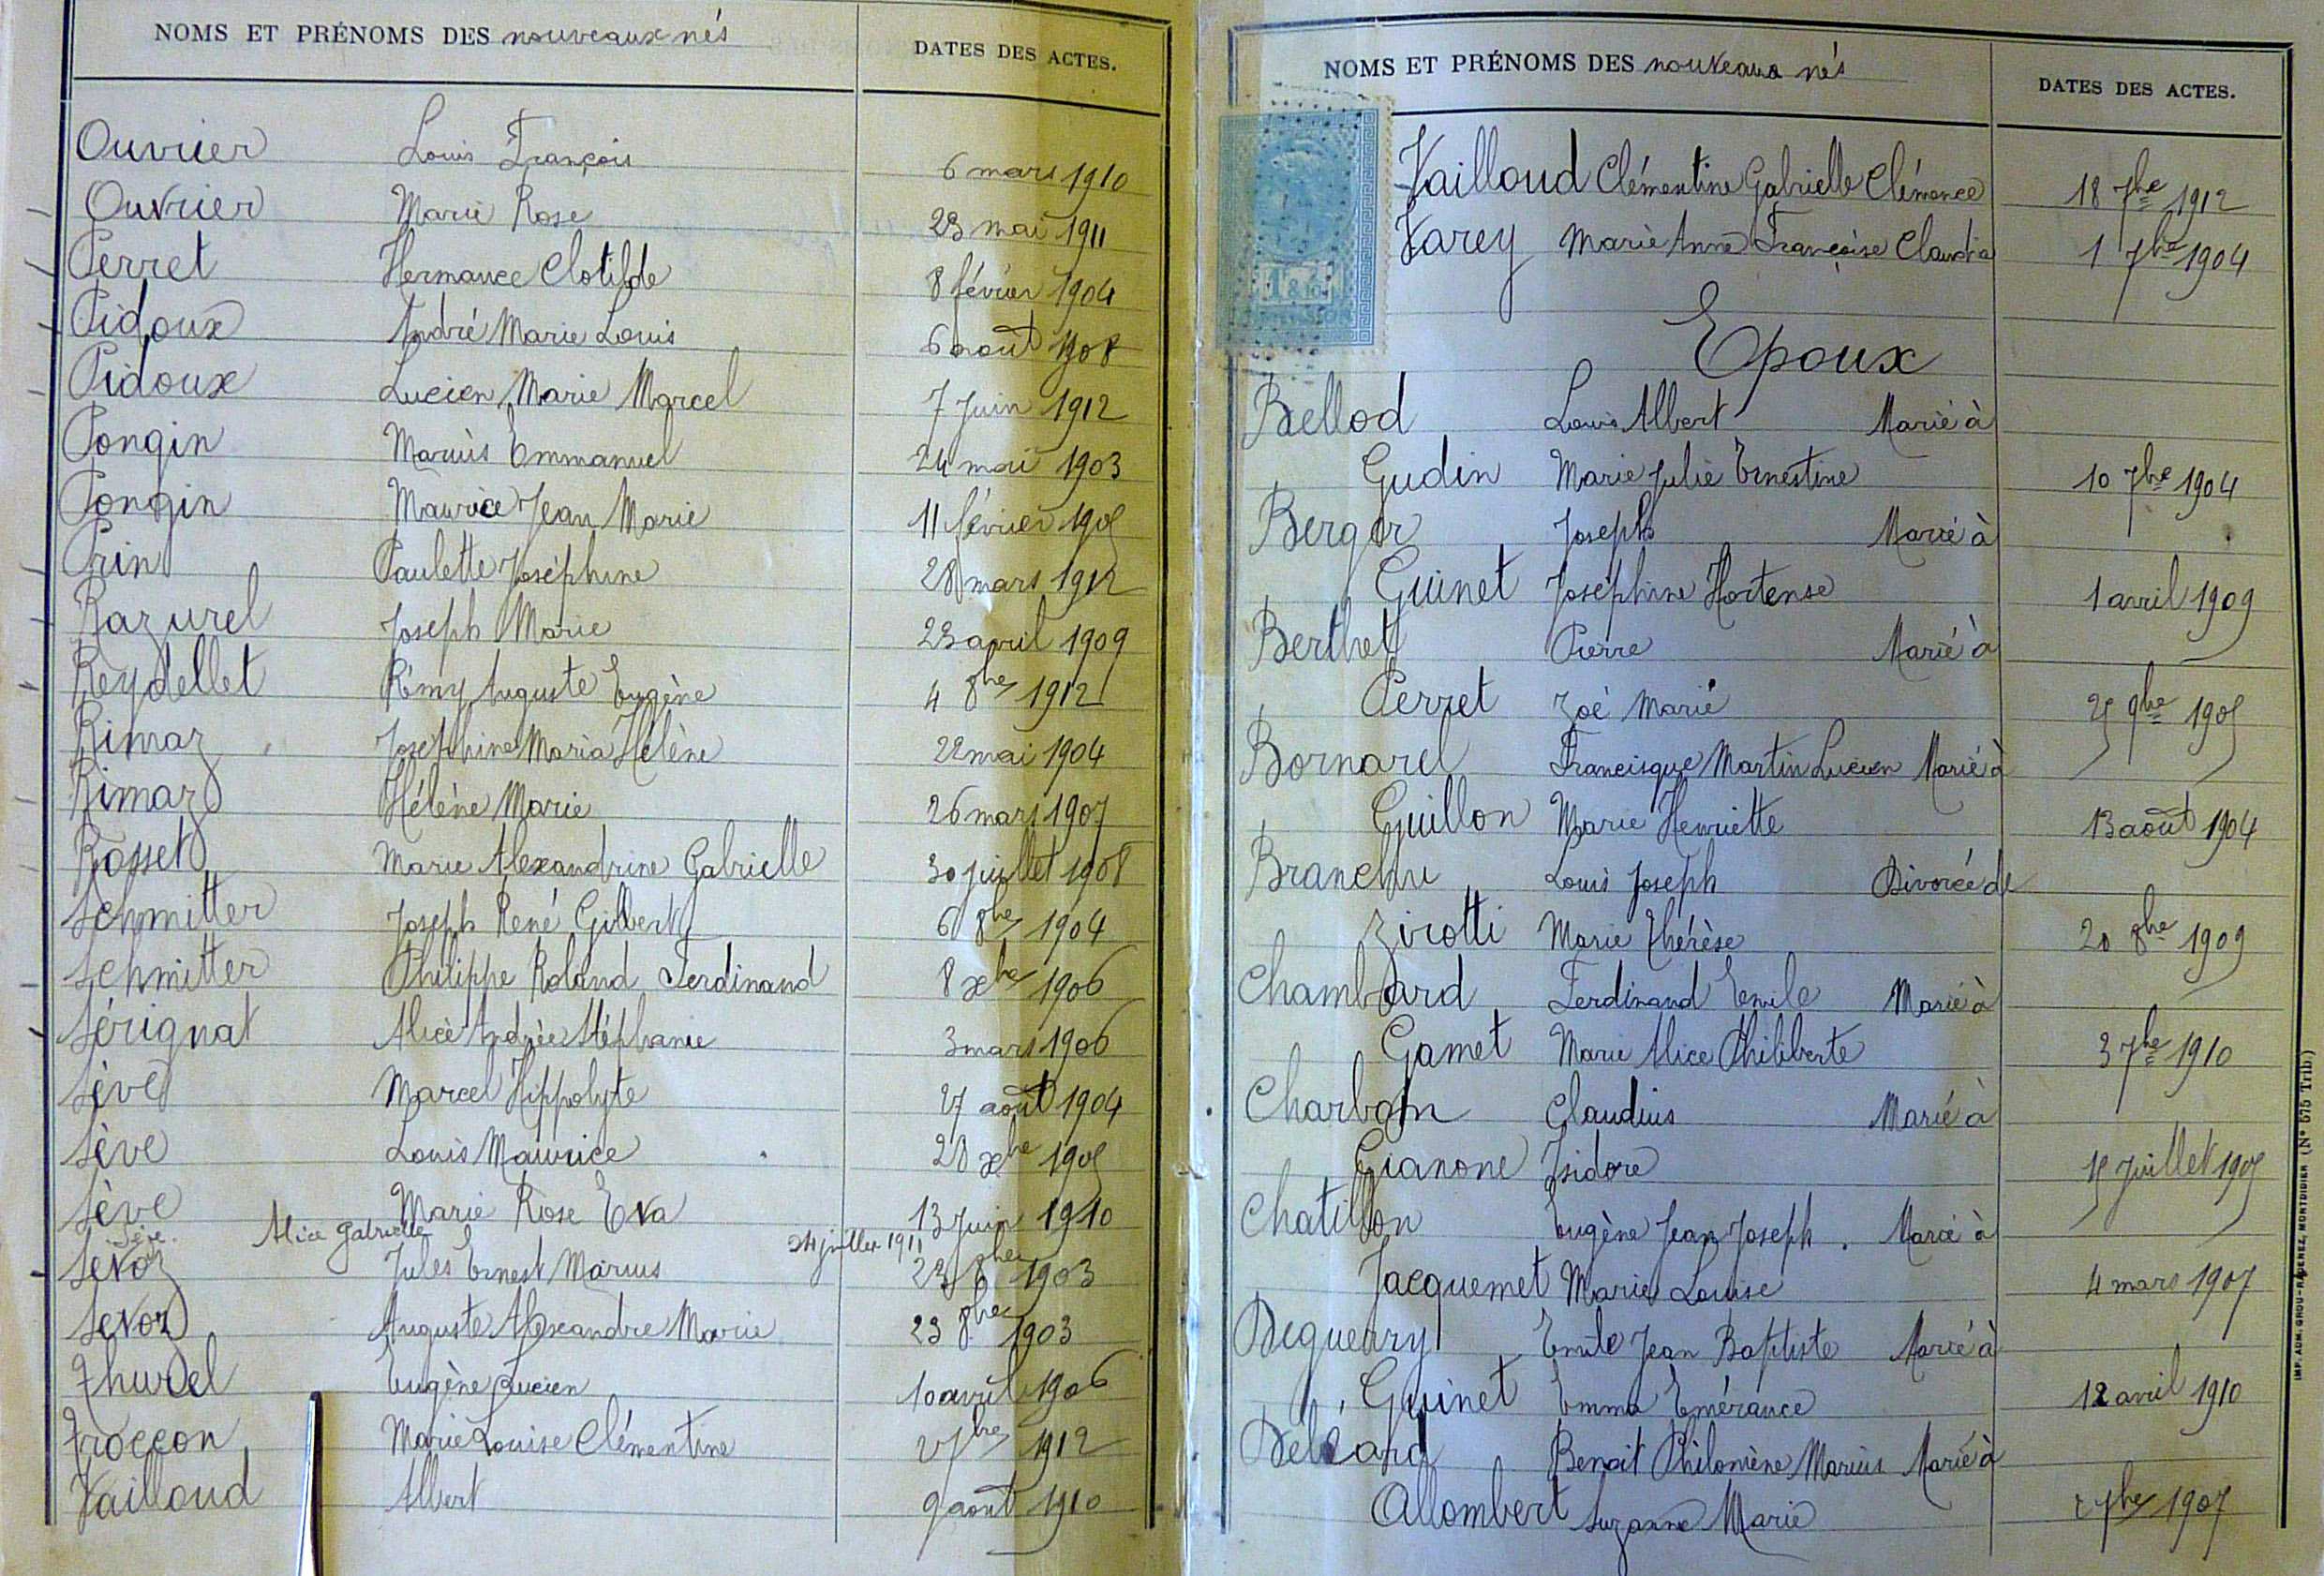 NOMS ET PRÉNOMS DES nouveaux nés DATES DES ACTES.
Ouvrier Louis François 6 mars 1910
Ouvrier Marie Rose 23 mai 1911
Perret Hermance Clotilde 8 février 1904
Pidoux André Marie Louis 6 août 1908
Pidoux Lucien Marie Marcel 7 Juin 1912
Pongin Marius Emmanuel 24 mai 1903
Pongin Maurice Jean Marie 11 février 1905
Prin Paulette Joséphine 28 mars 1912
Razurel Joseph Marie 23 avril 1909
Reydellet Rémy Auguste Eugène 4 8bre 1912
Rimaz Joséphine Maria Hélène 22 mai 1904
Rimaz Hélène Marie 26 mars 1907
Rosset Marie Alexandrine Gabrielle 30 juillet 1908
Schmitter Joseph René Gilbert 6 8bre 1904
Schmitter Philippe Roland Ferdinand 8 xbre 1906
Sérignat Alice Andrée Stéphanie 3 mars 1906
Sève Marcel Hippolyte 27 août 1904
Sève Louis Maurice 28 xbre 1905
Sève Marie Rose Eva 13 Juin 1910
Sève Alice Gabrielle 24 juillet 1911
Sevoz Jules Ernest Marius 23 8bre 1903
Sevoz Auguste Alexandre Marie 23 8bre 1903
Thurel Eugène Lucien 10 avril 1906
Troccon Marie Louise Clémentine 2 7bre 1912
Vailloud Albert 9 août 1910
NOMS ET PRÉNOMS DES nouveaux nés DATES DES ACTES.
Vailloud Clémentine Gabrielle Clémence 18 7bre 1912
Varey Marie Anne Françoise Claudia 1 7bre 1904
Epoux
Bellod Louis Albert Marié à
Gudin Marie Julie Ernestine 10 7bre 1904
Berger Joseph Marié à
Guinet Joséphine Hortense 1 avril 1909
Berthet Pierre Marié à
Perret Zoé Marie 25 9bre 1905
Bornarel Francisque Martin Lucien Marié à
Guillon Marie Henriette 13 août 1904
Branchu Louis Joseph Divorcé de
Zirotti Marie Thérèse 20 8bre 1909
Chambard Ferdinand Emile Marié à
Gamet Marie Alice Philiberte 3 7bre 1910
Charbon Claudius Marié à
Gianone Isidore 15 Juillet 1905
Chatillon Eugène Jean Joseph Marié à
Jacquemet Marie Louise 4 mars 1907
Deguerry Emile Jean Baptiste Marié à
Guinet Emma Emérance 12 avril 1910
Deléard Benoit Philomène Marius Marié à
Allombert Suzanne Marie 7bre 1907
IMP. ADM. GROU-RADENEZ, MONTDIDIER (N° 575 Trib.)